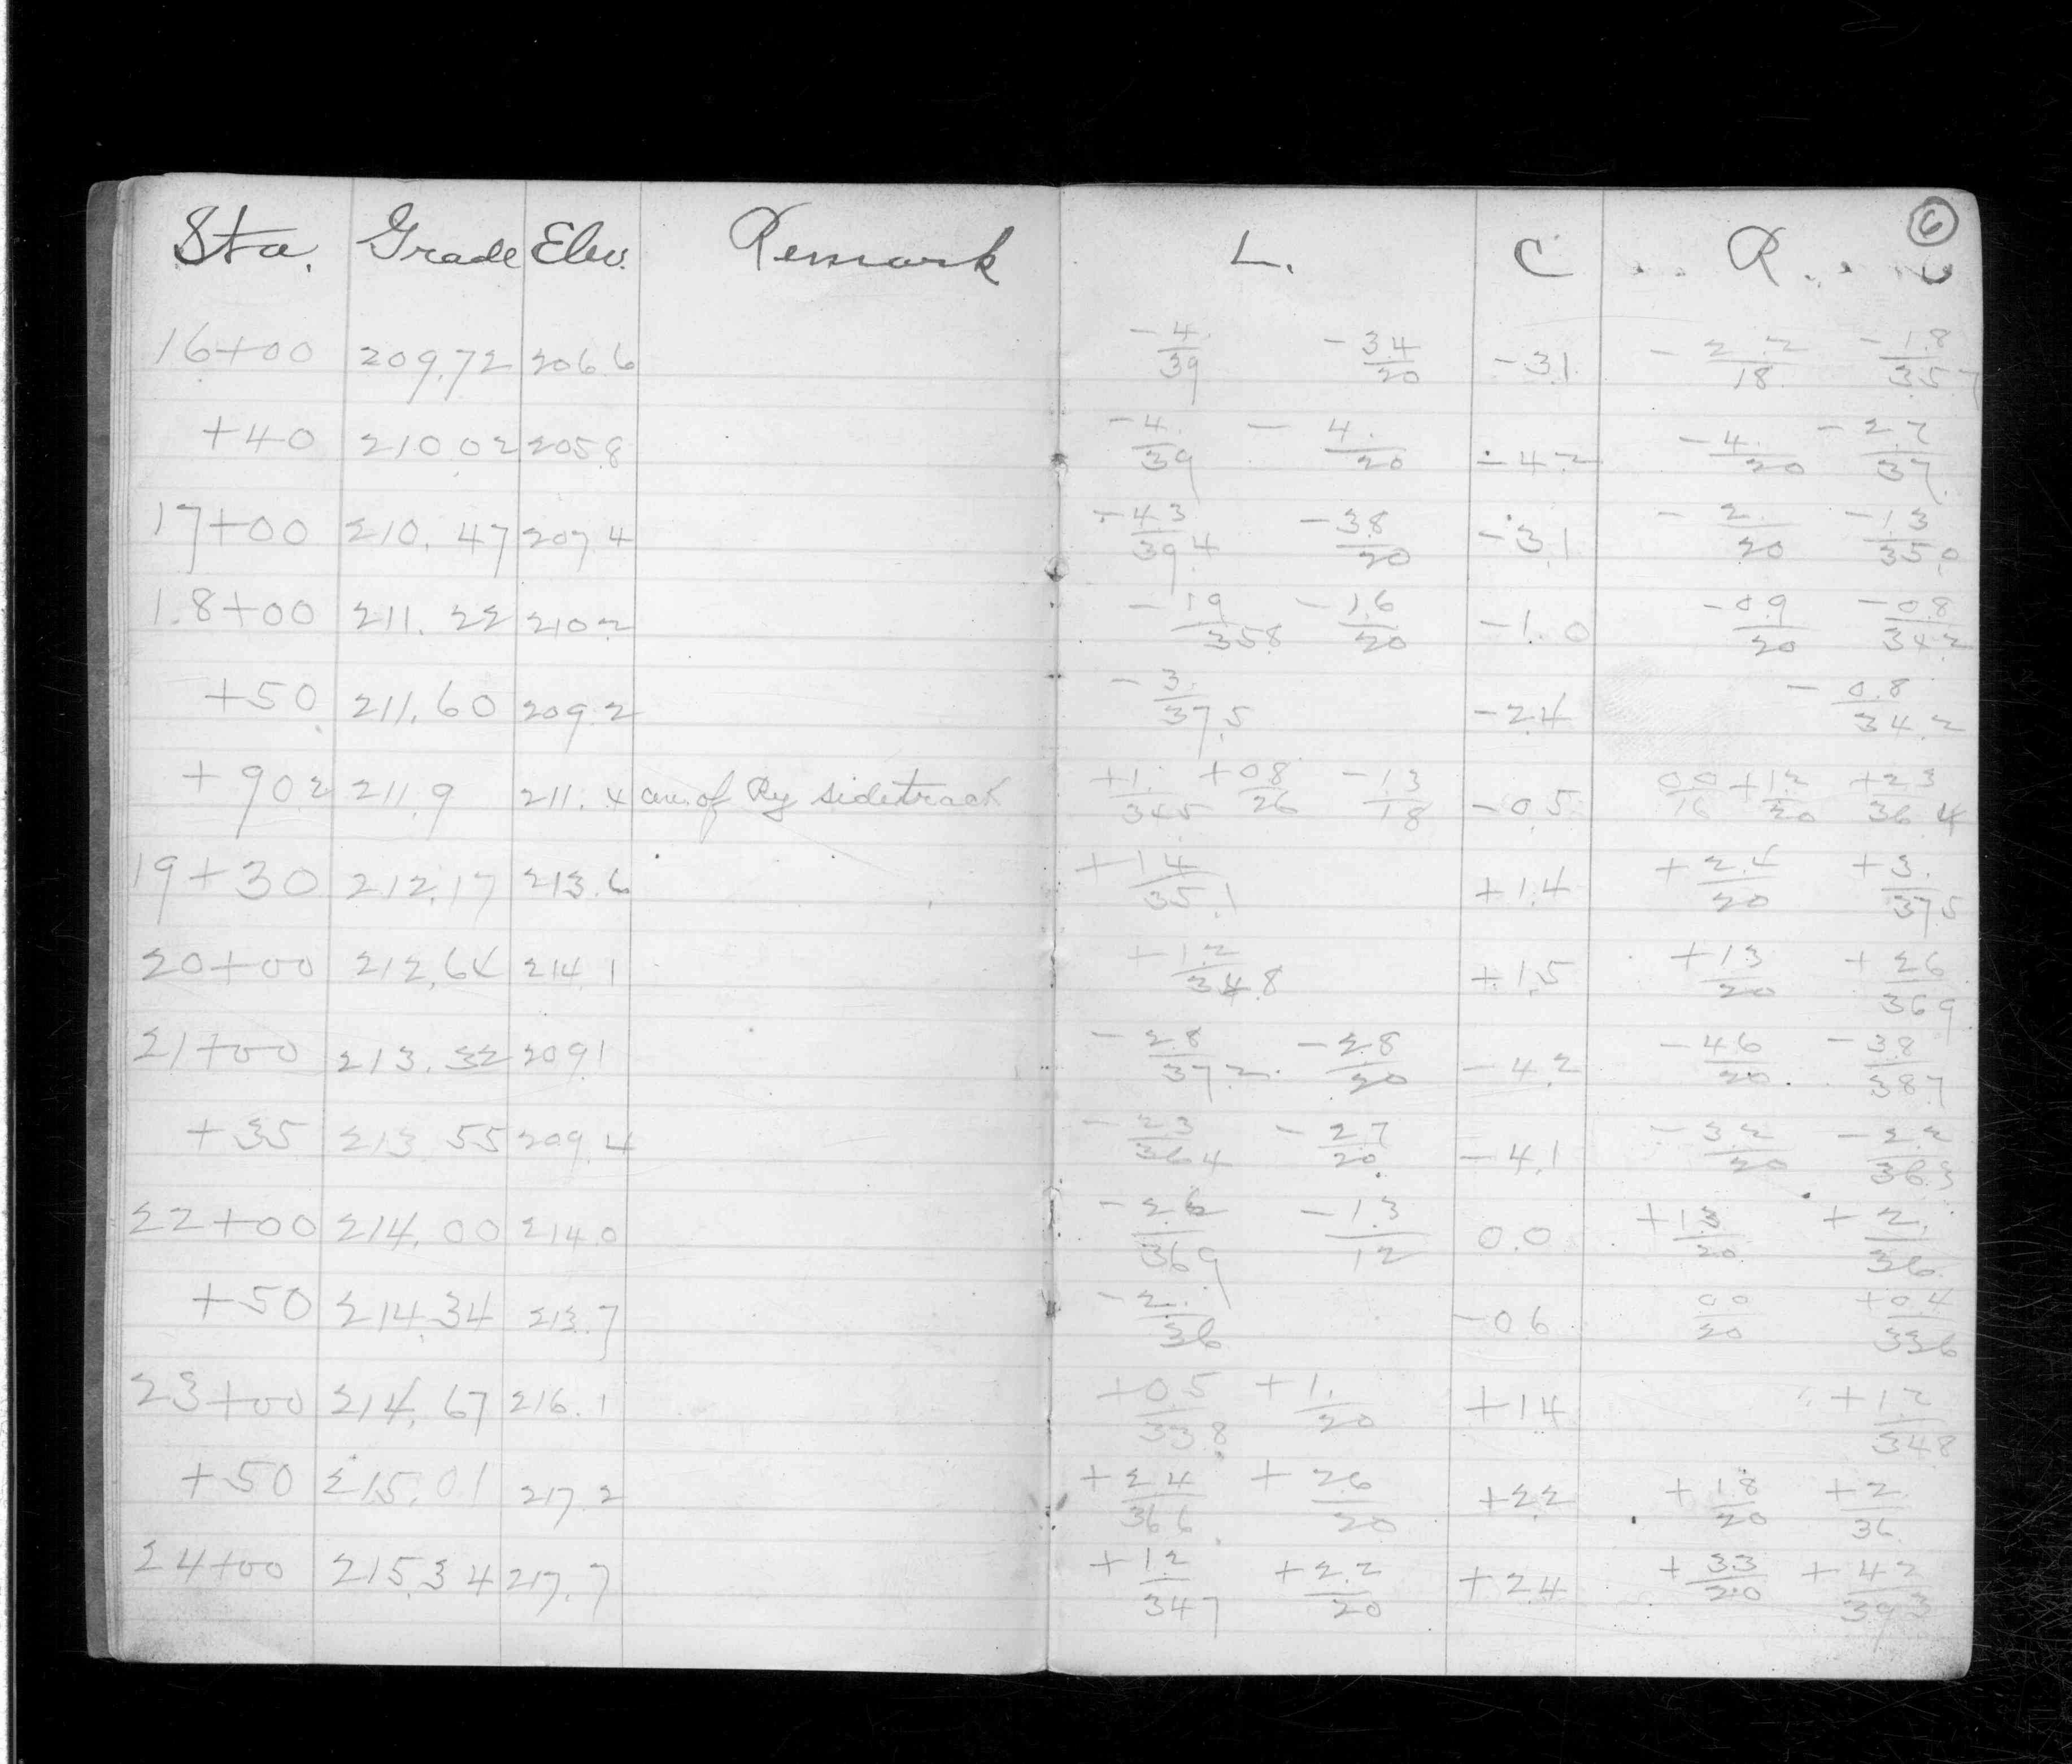 Sta. Grade Elev. Remark L. C R. 6
16+00 209.72 206.6 -4./39 -3.4/20 -3.1 -2.2/18 -1.8/35.7
+40 210.02 205.8 -4./39 -4./20 -4.2 -4./20 -2.7/37.
17+00 210.47 207.4 -4.3/39.4 -3.8/20 -3.1 -2./20 -1.3/35.0
18+00 211.22 210.2 -1.9/35.8 -1.6/20 -1.0 -0.9/20 -0.8/34.2
+50 211.60 209.2 -3./37.5 -2.4 -0.8/34.2
+90.2 211.9 211.4 cen. of Ry sidetrack +1./34.5 +0.8/26 -1.3/18 -0.5 0.0/16 +1.2/20 +2.3/36.4
19+30 212.17 213.6 +1.4/35.1 +1.4 +2.4/20 +3./37.5
20+00 212.64 214.1 +1.2/34.8 +1.5 +1.3/20 +2.6/36.9
21+00 213.32 209.1 -2.8/37.2 -2.8/20 -4.2 -4.6/20 -3.8/38.7
+35 213.55 209.4 -2.3/36.4 -2.7/20 -4.1 -3.2/20 -2.2/36.3
22+00 214.00 214.0 -2.6/36.9 -1.3/12 0.0 +1.3/20 +2./36
+50 214.34 213.7 -2./36 -0.6 0.0/20 +0.4/33.6
23+00 214.67 216.1 +0.5/33.8 +1./20 +1.4 +1.2/34.8
+50 215.01 217.2 +2.4/36.6 +2.6/20 +2.2 +1.8/20 +2./36
24+00 215.34 217.7 +1.2/34.7 +2.2/20 +2.4 +3.3/20 +4.2/39.3